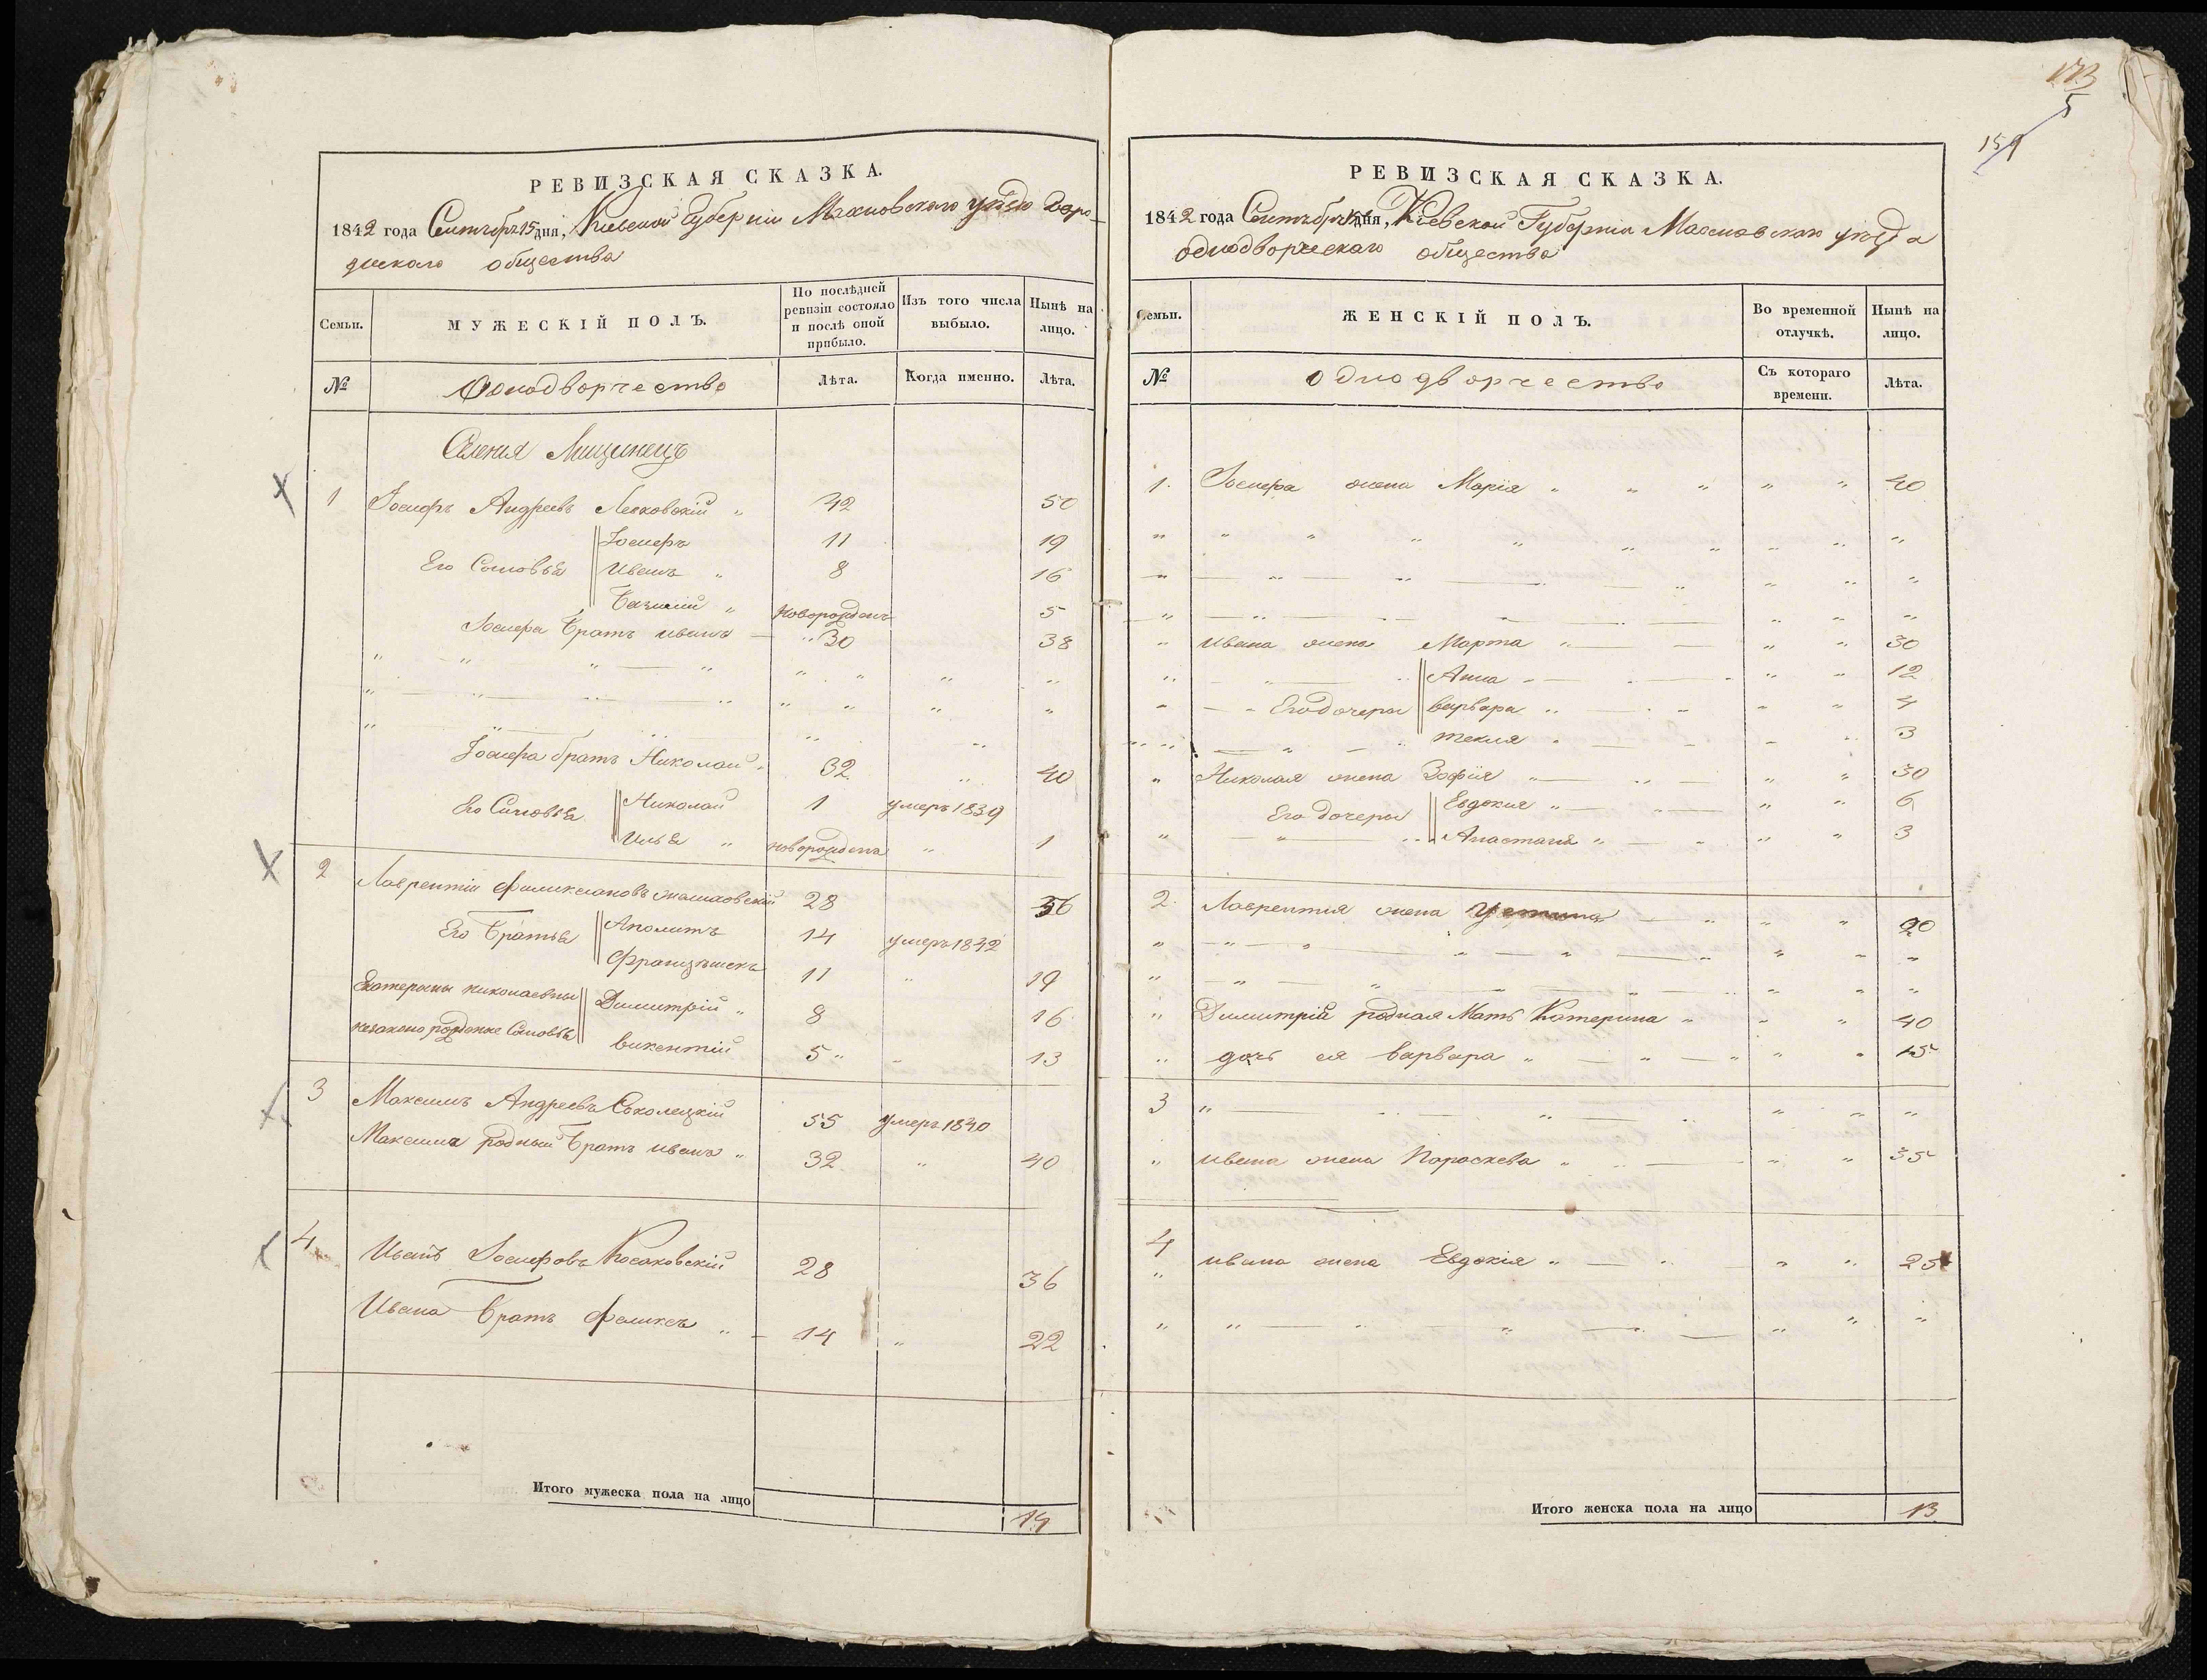 РЕВИЗСКАЯ СКАЗКА.
1842 года Сентября 15 дня, Киевской Губерніи Махновского уѣзда
общества
Семьи.
МУЖЕСКІЙ ПОЛЪ.
По послѣдней ревизіи состояло и послѣ оной прибыло.
Изъ того числа выбыло.
Нынѣ на лицо.
№
Однодворчество
Лѣта.
Когда именно.
Лѣта.
Селения
1 Іосифъ Андреевъ 42 50
Іосифъ 11 19
Его Сыновья Иванъ 8 16
новорожденъ 5
Іосифа Братъ иванъ 30 38
Іосифа братъ Николай 32 40
Его Сыновья Николай 1 умеръ 1839
Илья новорожденъ 1
2 Лаврентій 28 36
Его Братья Аполитъ 14 умеръ 1842
Францышекъ 11 19
Екатерины николаевны Димитрій 8 16
незаконо рожденые Сыновья викентій 5 13
3 Максимъ Андреевъ Соколецкій 55 умеръ 1840
Максима родный Братъ иванъ 32 40
4 Иванъ Іосифовъ Косаковскій 28 36
Ивана Братъ Феликсъ 14 22
Итого мужеска пола на лицо
14
173
5
159
РЕВИЗСКАЯ СКАЗКА.
1842 года Сентября 15 дня, Кіевской Губерніи Махновского уѣзда
однодворческаго общества
Семьи.
ЖЕНСКІЙ ПОЛЪ.
Во временной отлучкѣ.
Нынѣ на лицо.
№
однодворчество
Съ котораго времени.
Лѣта.
1. Іосифа жена Марія 40
Ивана жена Марта 30
Анна 12
Его дочеры варвара 4
текля 3
Николая жена Зофія 30
Его дочеры Евдокия 6
Анастасия 3
2. Лаврентия жена 20
Димитрія родная Мать Катерина 40
дочь ея варвара 15
3
ивана жена Параскева 35
4 ивана жена Евдокія 25
Итого женска пола на лицо
13